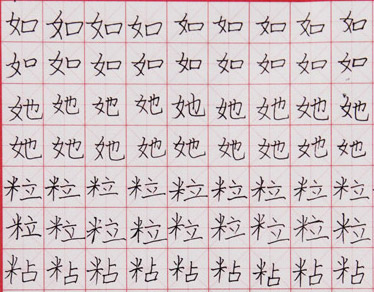 如如如如如如如如如
如如如如如如如如如
她她她她她她她她她
她她她她她她她她她
粒粒粒粒粒粒粒粒粒
粒粒粒粒粒粒粒粒粒
粘粘粘粘粘粘粘粘粘